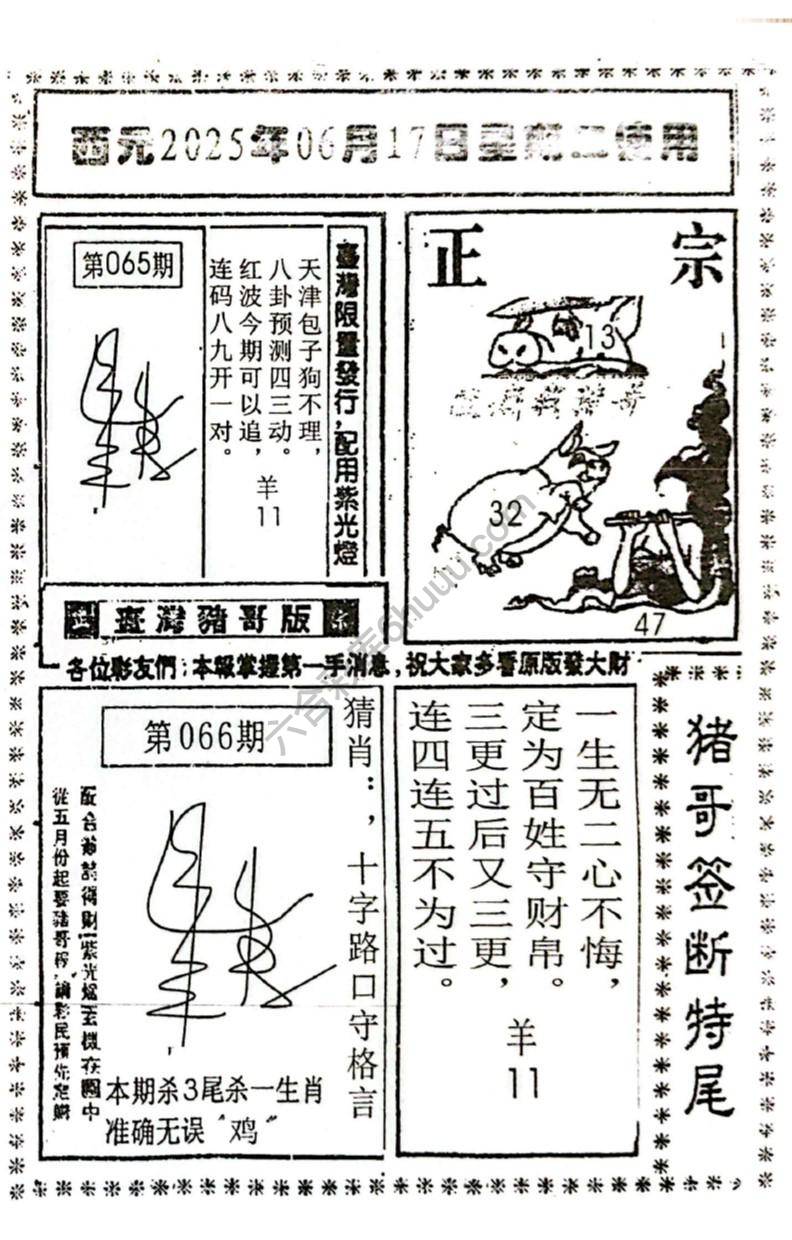 西元2025年06月17日星期二使用
第065期
天津包子狗不理，
八卦预测四三动。
红波今期可以追，
连码八九开一对。
羊
11
臺灣限量發行，配用紫光燈
正宗
13
32
47
臺灣豬哥版
各位彩友們：本報掌握第一手消息，祝大家多看原版發大財
第066期
猜肖：，十字路口守格言
從五月份起要豬哥報，請彩民預先定購
本期杀3尾杀一生肖
准确无误“鸡”
一生无二心不悔，
定为百姓守财帛。
三更过后又三更，
连四连五不为过。
羊
11
猪哥签断特尾
六合彩库6huuu.com